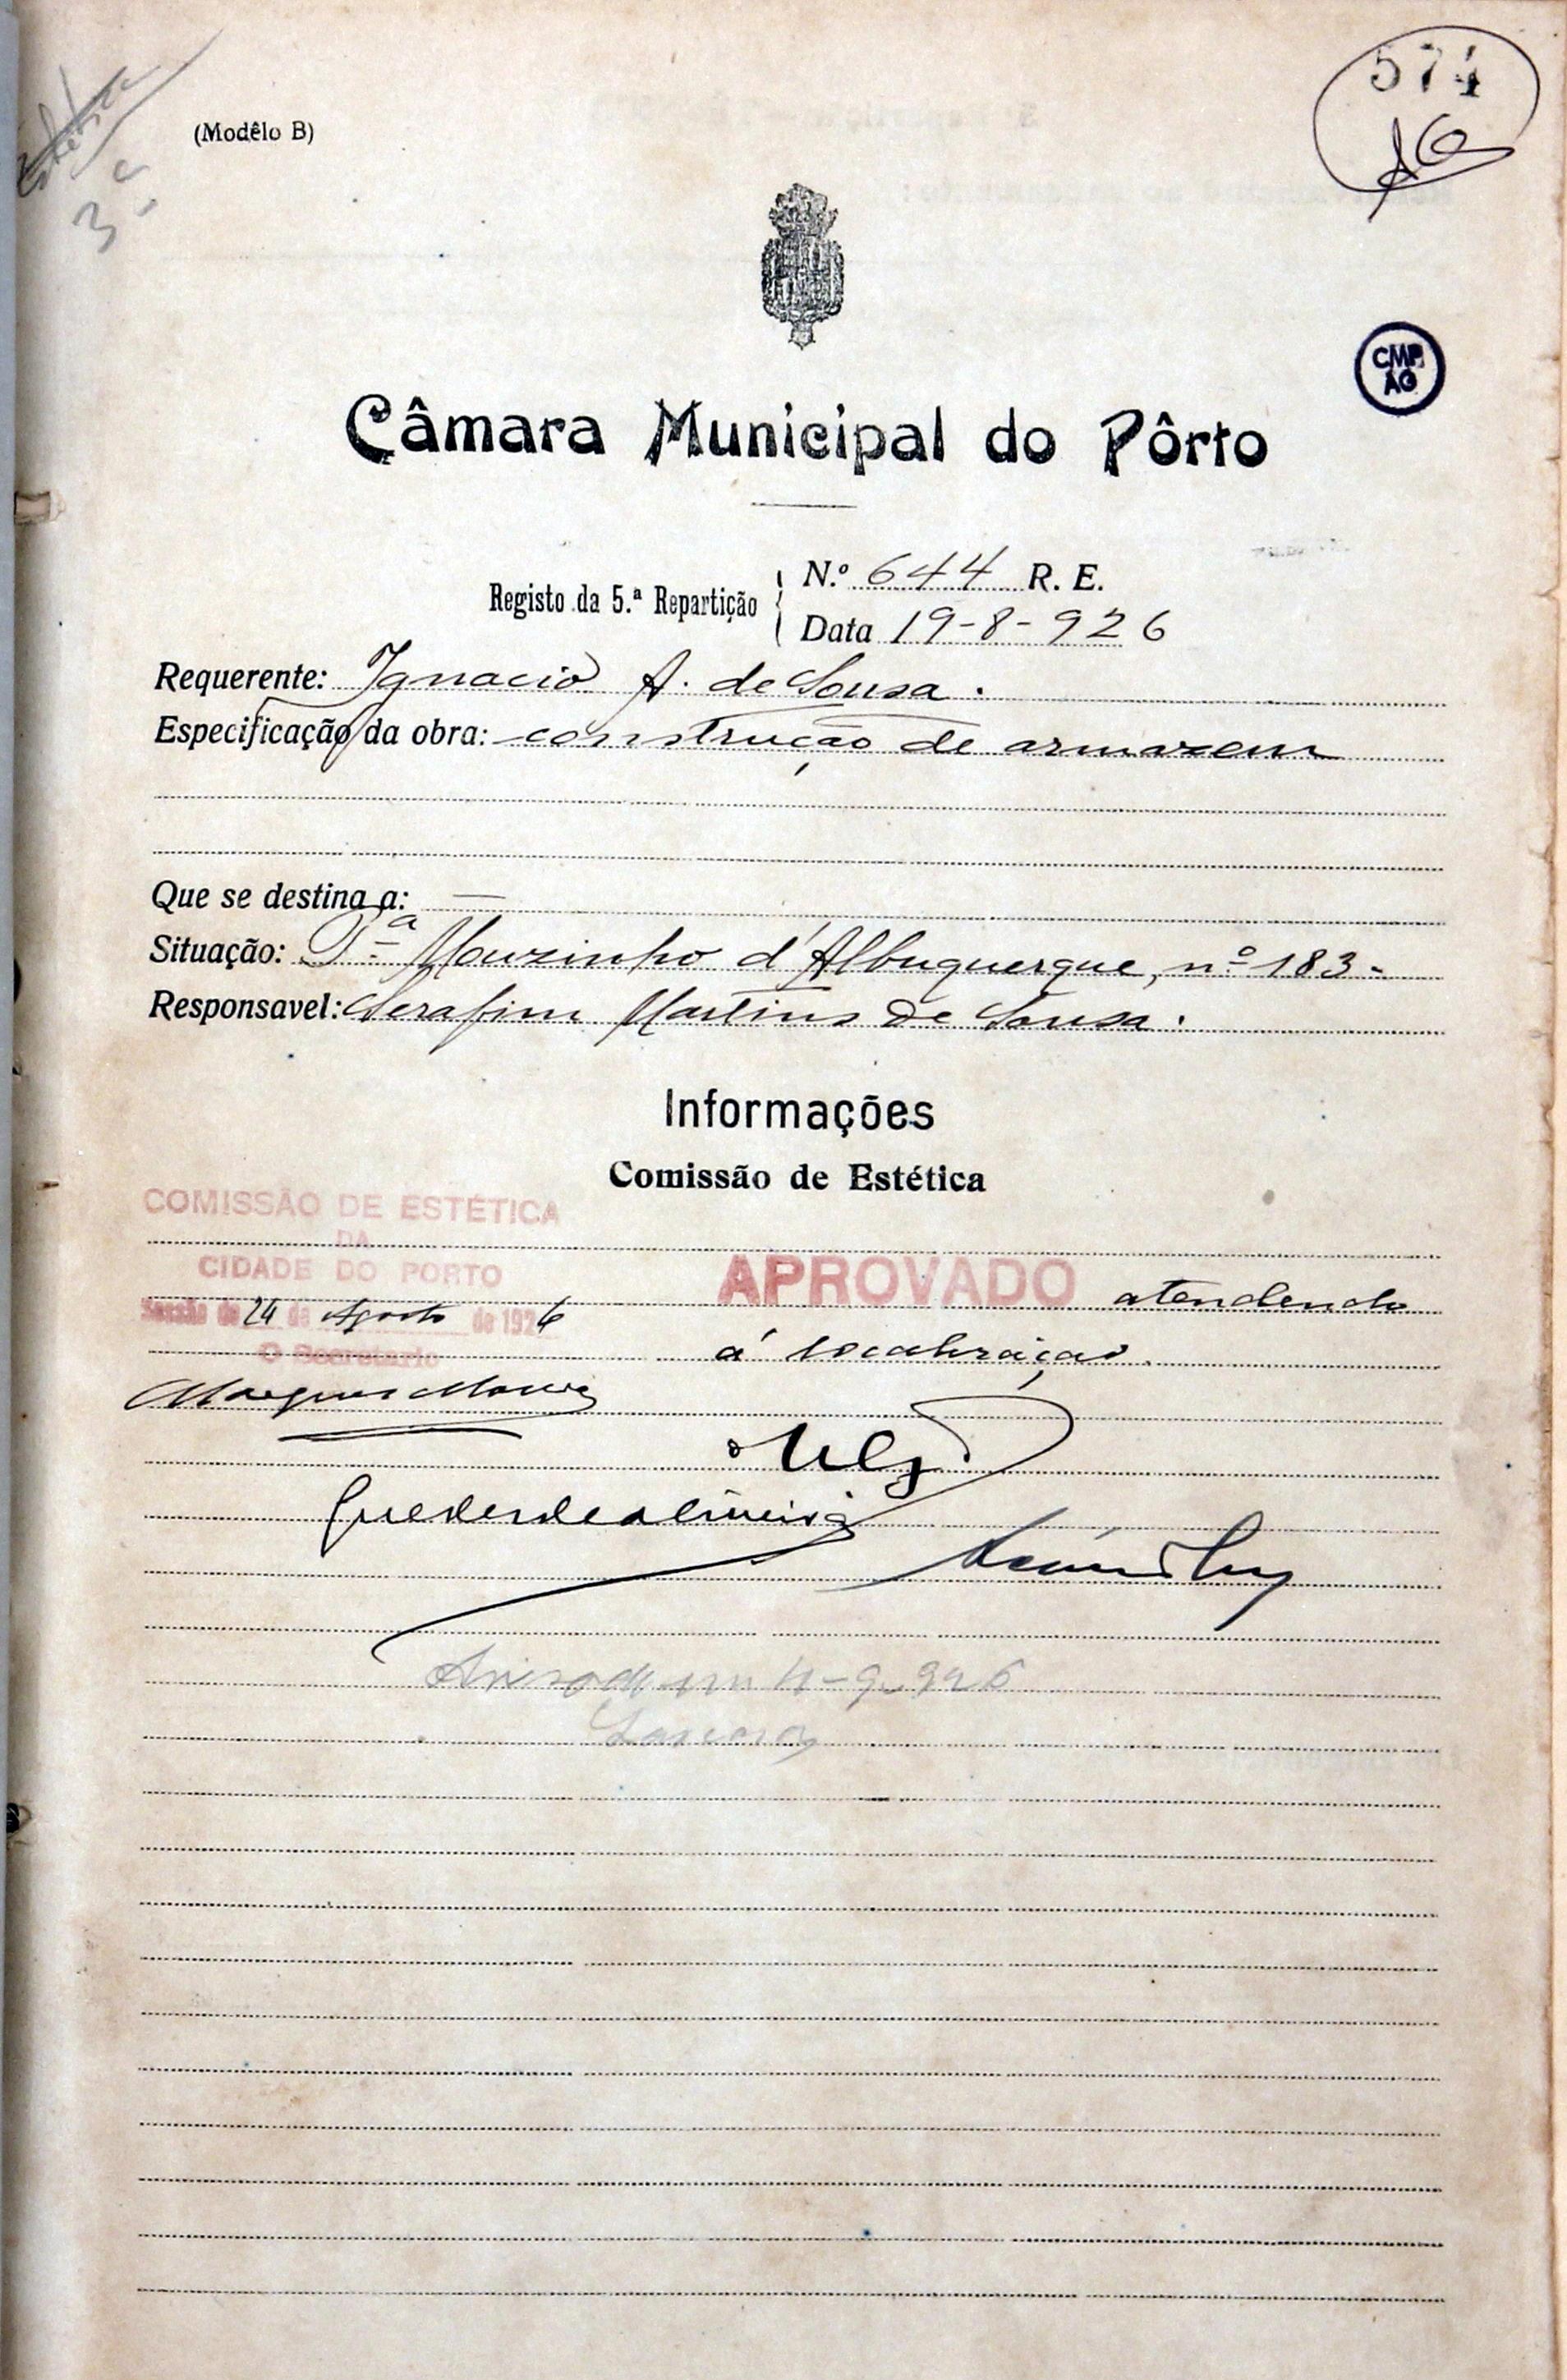 574
(Modêlo B)
3.
CMP
AG
Câmara Municipal do Pôrto
Registo da 5.ª Repartição
N.º 644 R. E.
Data 19-8-926
Requerente: Ignacio A. de Sousa.
Especificação da obra: construção de armazem
Que se destina a: —
Situação: Pª Mouzinho d'Albuquerque, nº 183-
Responsavel: Serafim Martins de Sousa.
Informações
Comissão de Estética
COMISSÃO DE ESTÉTICA
DA
CIDADE DO PORTO
Sessão de 24 de Agosto de 1926
O Secretario
APROVADO atendendo
á localização.